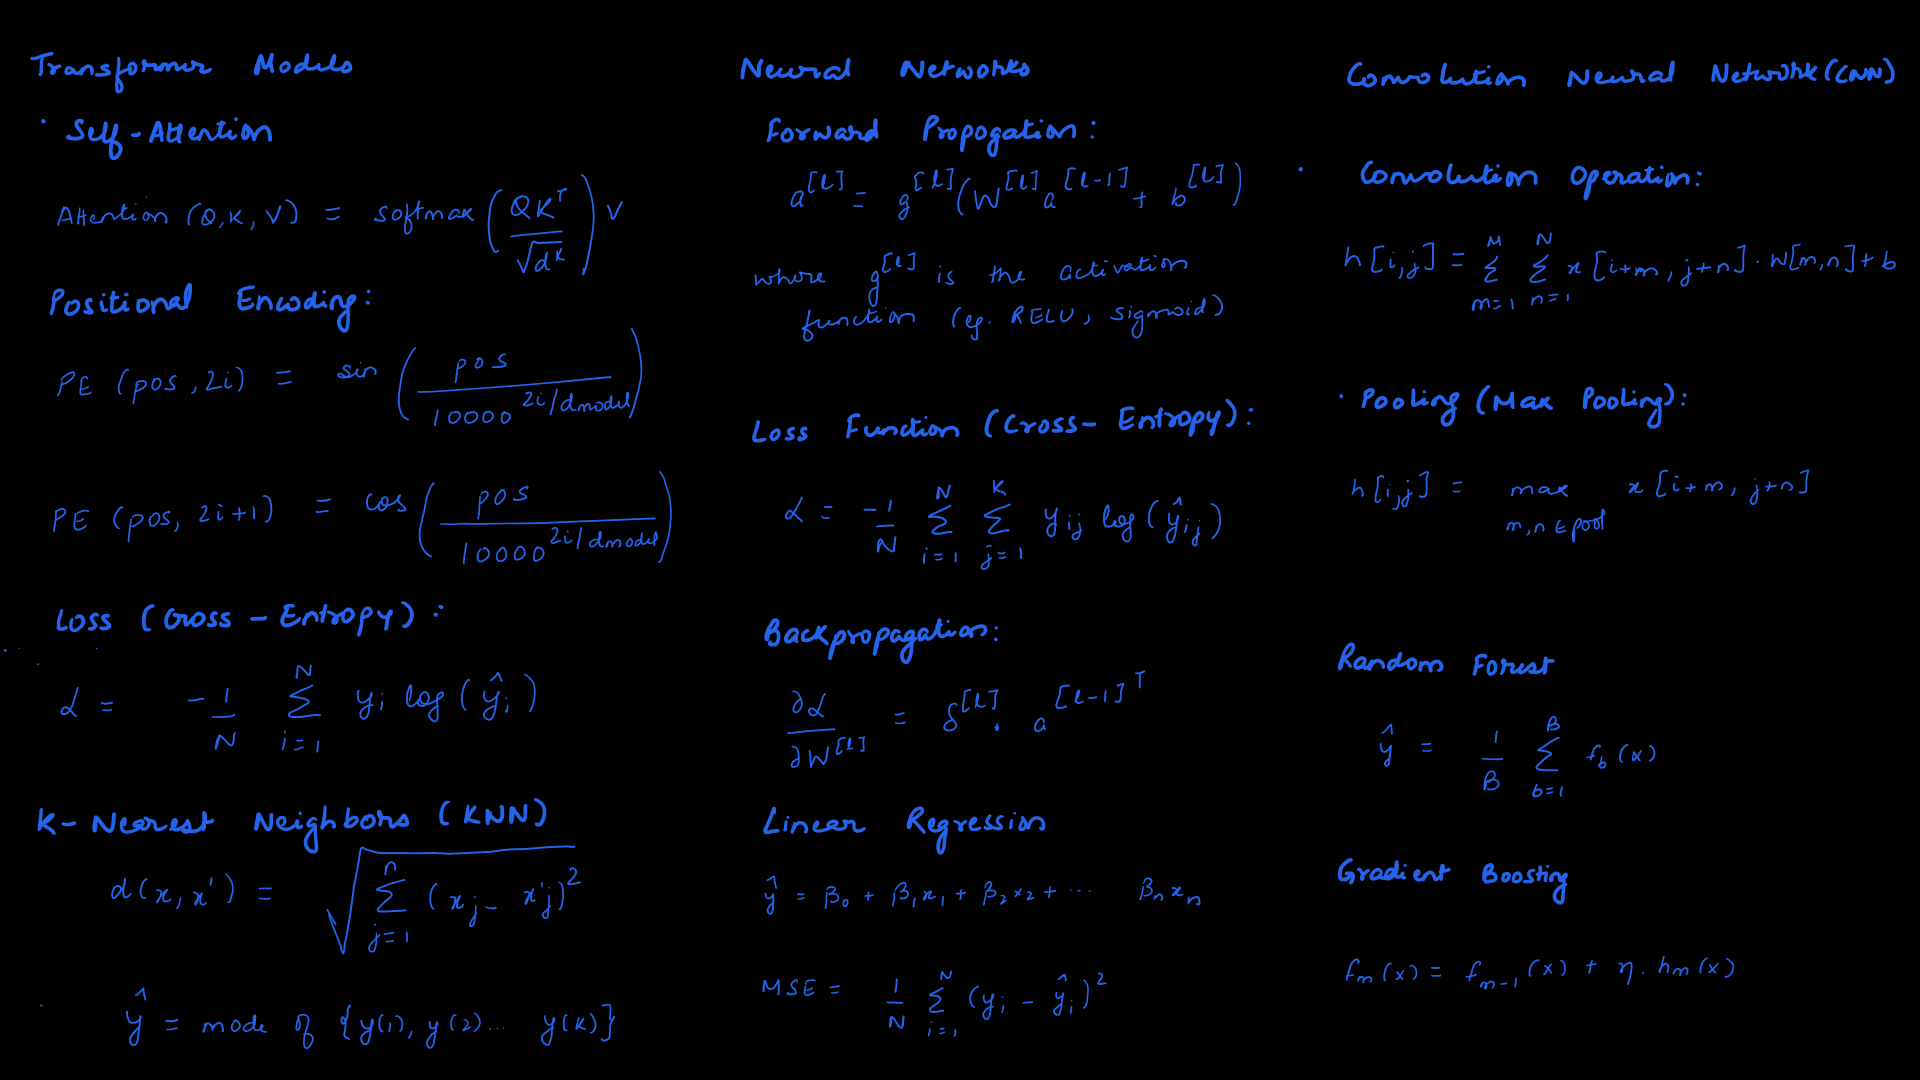 Transformer Models
· Self-Attention
Attention (Q,K,V) = softmax (QK^T / √d^k) V
Positional Encoding:
PE (pos, 2i) = sin (pos / 10000^(2i/dmodel))
PE (pos, 2i+1) = cos (pos / 10000^(2i/dmodel))
Loss (Cross-Entropy):
L = -1/N Σ_{i=1}^{N} y_i log(ŷ_i)
K-Nearest Neighbors (KNN)
d(x,x') = √(Σ_{j=1}^{n} (x_j - x'_j)^2)
ŷ = mode of {y(1), y(2)... y(K)}
Neural Networks
Forward Propogation:
a^[l] = g^[l](W^[l] a^[l-1] + b^[l])
where g^[l] is the activation
function (eg. RELU, sigmoid)
Loss Function (Cross-Entropy):
L = -1/N Σ_{i=1}^{N} Σ_{j=1}^{K} y_ij log(ŷ_ij)
Backpropagation:
∂L/∂W^[l] = δ^[l] . a^[l-1]^T
Linear Regression
ŷ = β_0 + β_1x_1 + β_2x_2 + ... β_nx_n
MSE = 1/N Σ_{i=1}^{N} (y_i - ŷ_i)^2
Convolution Neural Network (CNN)
· Convolution Operation:
h[i,j] = Σ_{m=1}^{M} Σ_{n=1}^{N} x[i+m, j+n] . W[m,n] + b
· Pooling (Max Pooling):
h[i,j] = max_{m,n ∈ pool} x[i+m, j+n]
Random Forest
ŷ = 1/B Σ_{b=1}^{B} f_b(x)
Gradient Boosting
f_m(x) = f_{m-1}(x) + η . h_m(x)